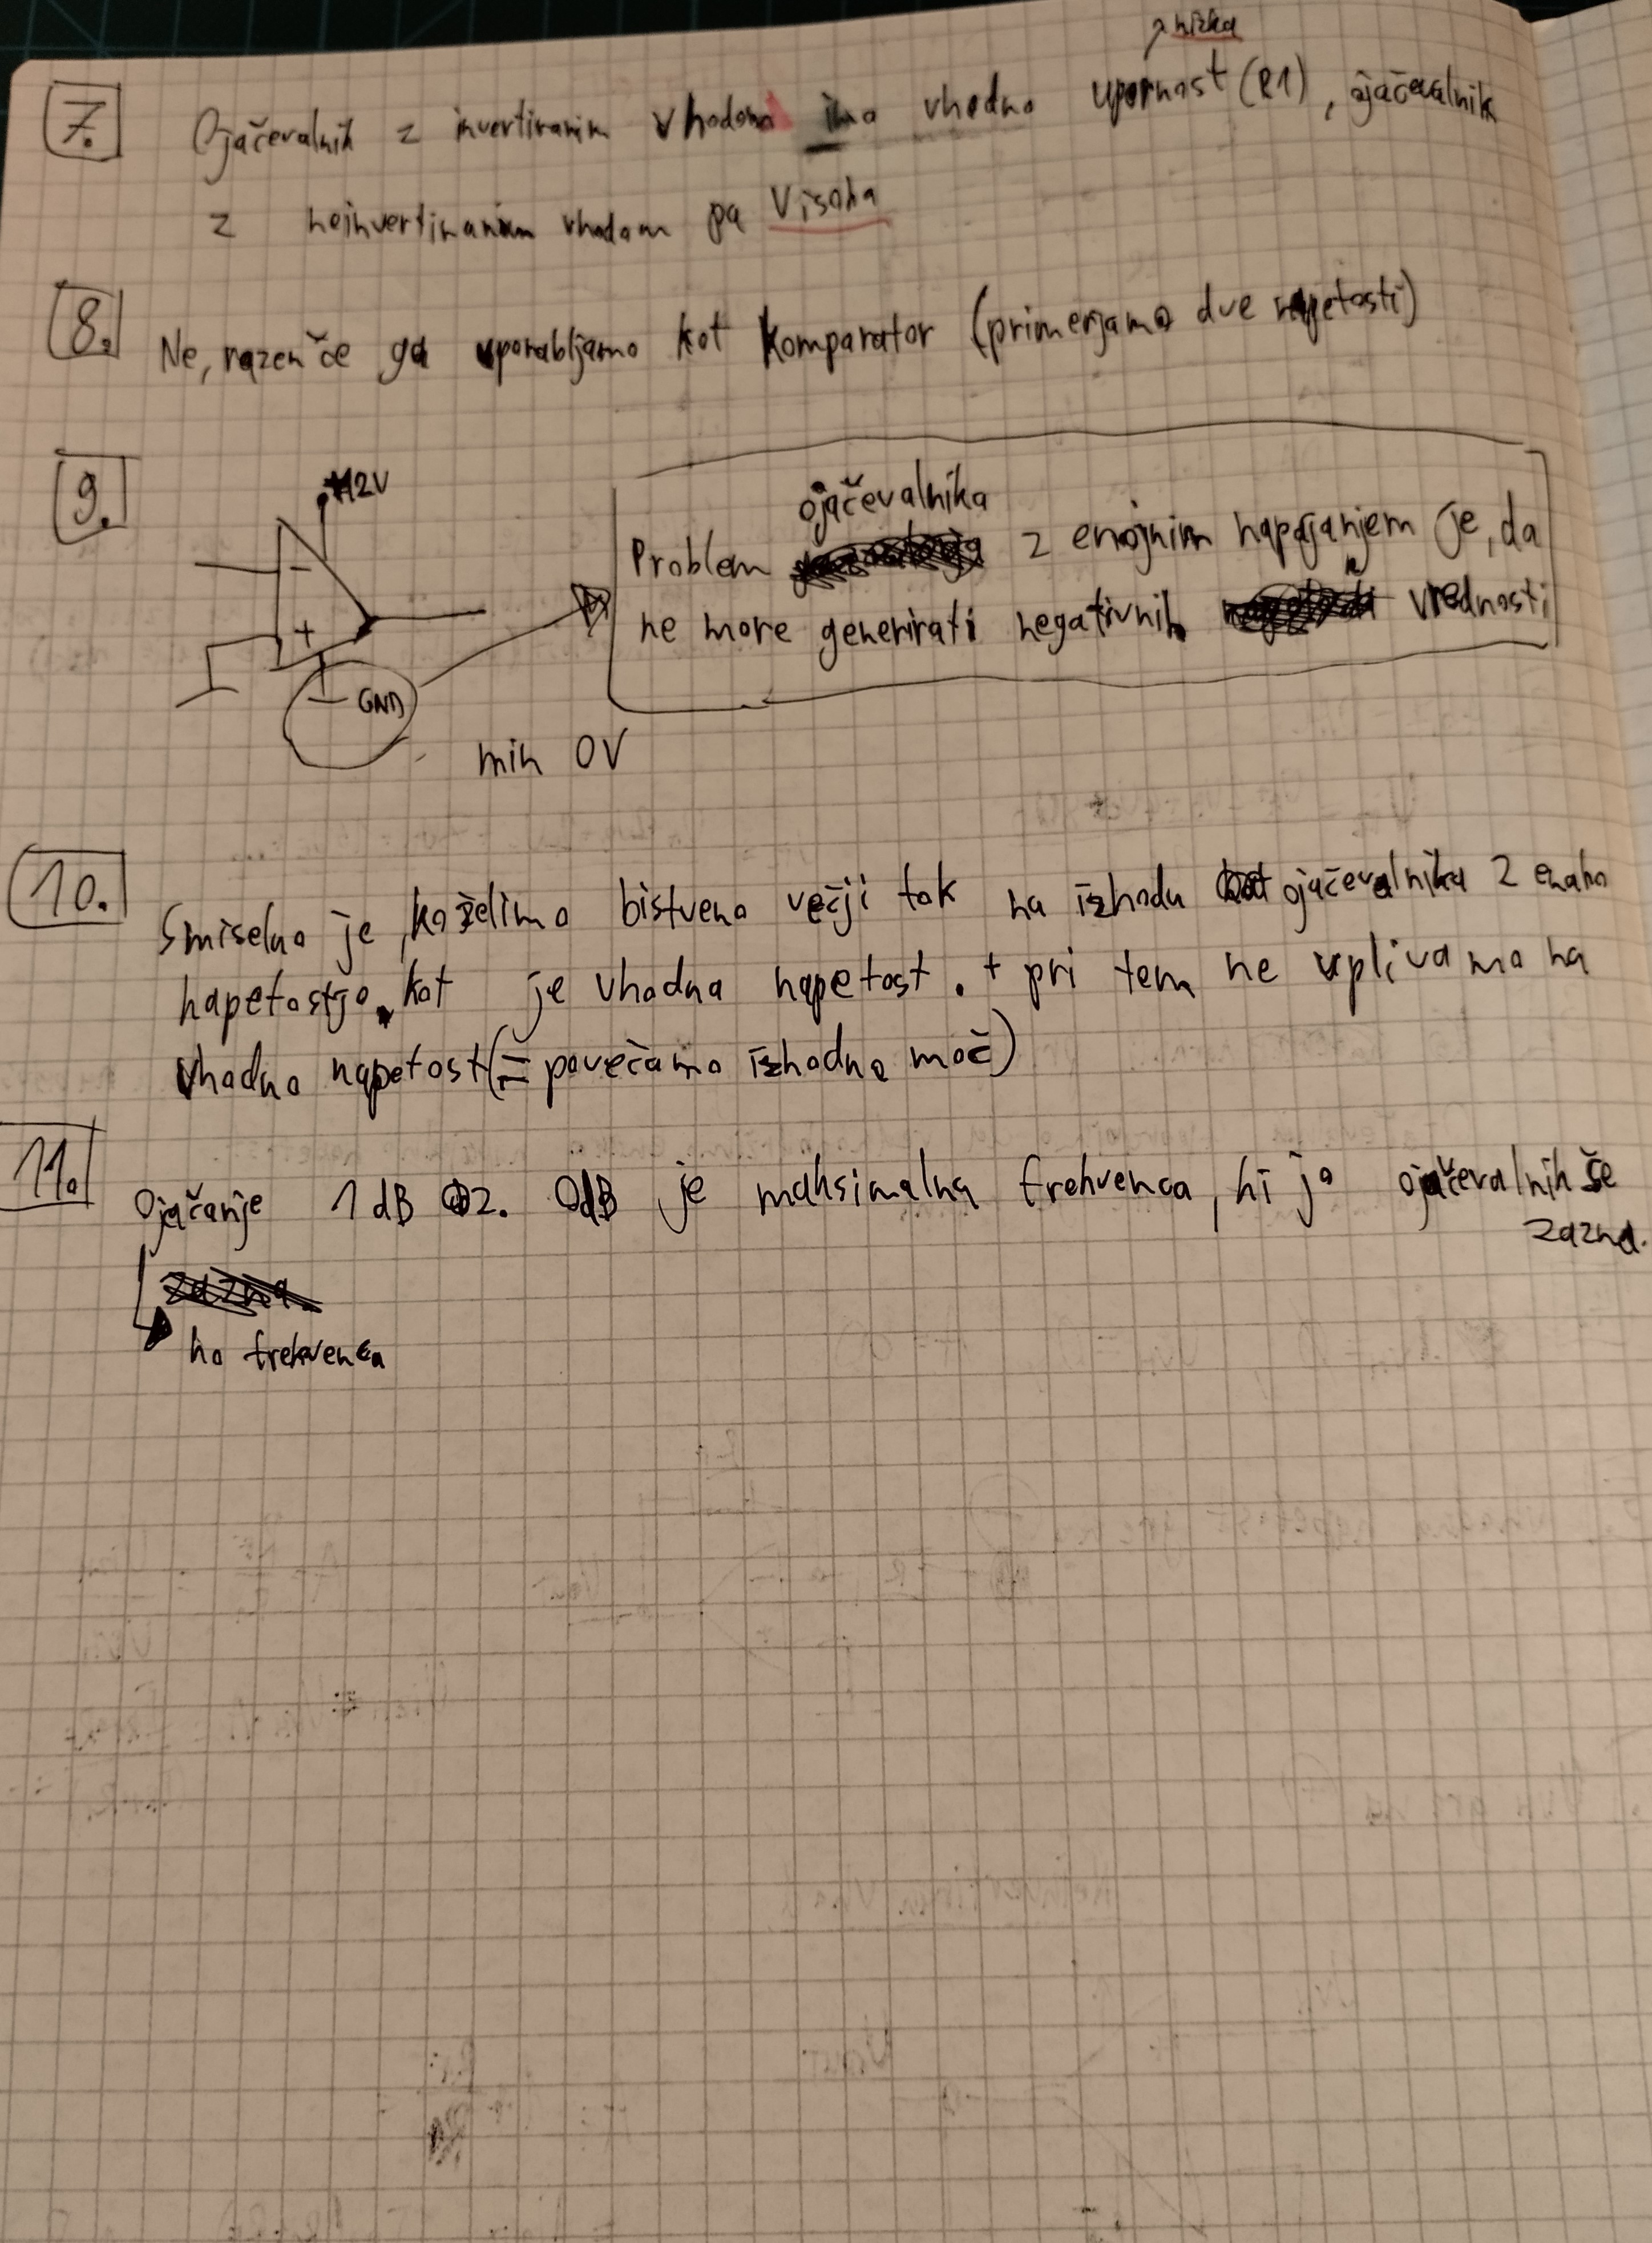 nizka
7. Ojačevalnik z invertiranim vhodom ima vhodno upornost (R1), ojačevalnik
z neinvertiranim vhodom pa visoka
8. Ne, razen če ga uporabljamo kot komparator (primerjamo dve napetosti)
9.
+12V
-
+
GND
min 0V
ojačevalnika
Problem z enojnim napajanjem je, da
ne more generirati negativnih vrednosti
10. Smiselno je, ko želimo bistveno večji tok na izhodu ojačevalnika z enako
napetostjo kot je vhodna napetost. + pri tem ne vplivamo na
vhodno napetost (= povečamo izhodno moč)
11. Ojačanje 1 dB oz. 0dB je maksimalna frekvenca, ki jo ojačevalnik še
zazna.
ko frekvenca